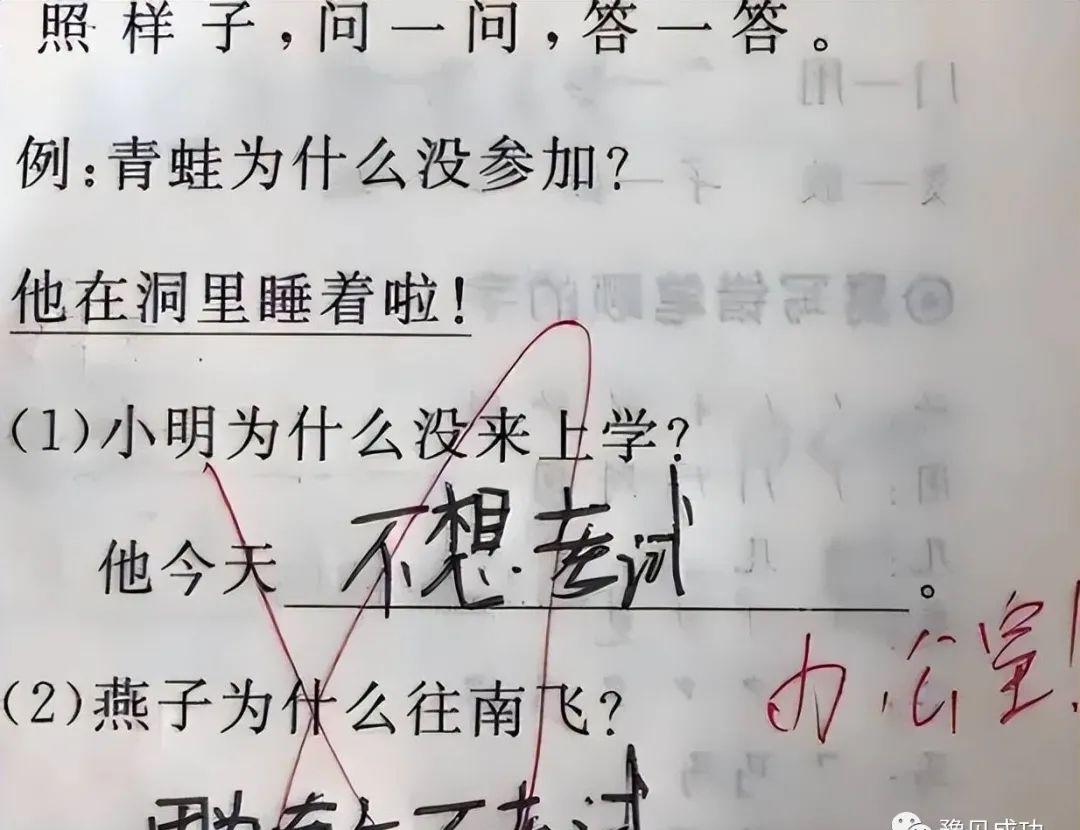 照样子,问一问,答一答。
例:青蛙为什么没参加?
他在洞里睡着啦!
(1)小明为什么没来上学?
他今天不想考试。
办公室!
(2)燕子为什么往南飞?
因为南方不考试
豫见成功